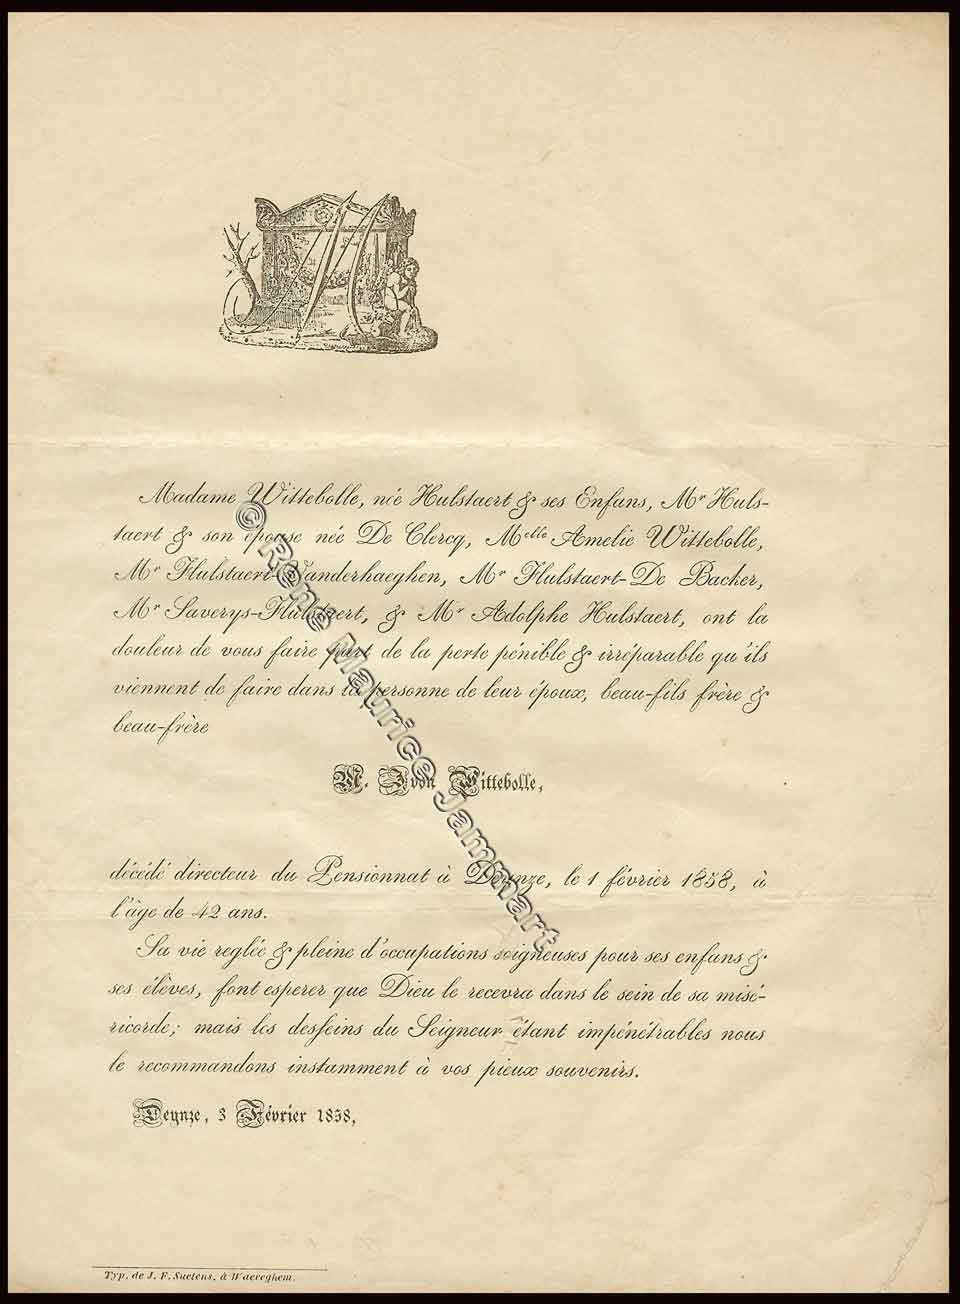 Madame Wittebolle, née Hulstaert & ses Enfans, Mr Huls-
taert & son épouse née De Clercq, Melle Amelie Wittebolle,
Mr Hulstaert-Vanderhaeghen, Mr Hulstaert-De Backer,
Mr Saverys-Hulstaert, & Mr Adolphe Hulstaert, ont la
douleur de vous faire part de la perte pénible & irréparable qu'ils
viennent de faire dans la personne de leur époux, beau-fils frère &
beau-frère
M. Ivon Wittebolle,
décédé directeur du Pensionnat à Deynze, le 1 février 1858, à
l'âge de 42 ans.
Sa vie reglée & pleine d'occupations soigneuses pour ses enfans &
ses élèves, font esperer que Dieu le recevra dans le sein de sa misé-
ricorde; mais les desseins du Seigneur étant impénétrables nous
le recommandons instamment à vos pieux souvenirs.
Deynze, 3 Février 1858,
Typ. de J. F. Suetens, à Waereghem.
© René Maurice Jammart